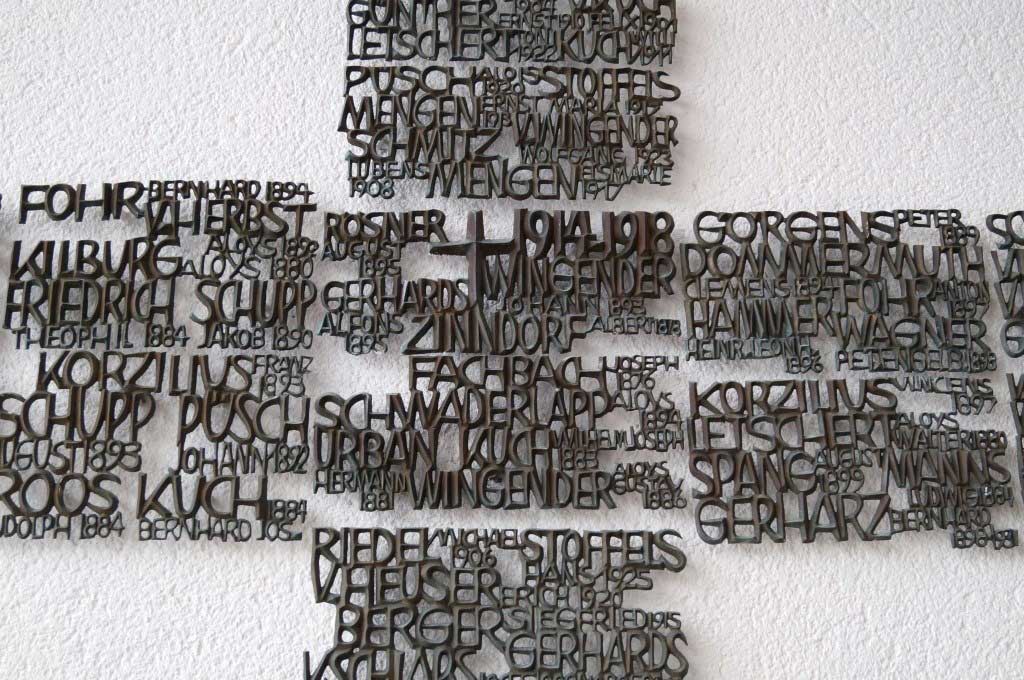 GÜNTHER ERNST 1904 FELIX 1904
LETSCHERT 1922 KUCH 1911
PÜSCH ALOIS STOFFELS
MENGEN ERNST MARIA 1917
V. WINGENDER
SCHMITZ WOLFGANG 1923
LÜBENS 1908 MENGEN ELSMARIE
FOHR BERNHARD 1894
V. HERBST
KILBURG ALOYS 1880
FRIEDRICH SCHUPP
THEOPHIL 1884 JAKOB 1890
KORZILIUS FRANZ 1893
SCHUPP PÜSCH
AUGUST 1893 JOHANN 1892
ROOS KUCH 1884
BERNHARD JOS.
RÖSNER AUGUST 1895
1914-1918
WINGENDER
GERHARDS JOHANN 1893
ALFONS 1895 ZINNDORF ALBERT 1878
FACHBACH JOSEPH 1876
SCHWADERLAPP ALOYS 1894
URBAN KUCH WILHELM JOSEPH
1883
HERMANN 1881 WINGENDER ALOYS GUSTAV 1886
GÖRGENS PETER 1889
DOMMERMUTH
CLEMENS 1894 FOHR ANTON
HAMMER WAGNER
HEINR. LEONH. 1896 PET. ENGELB. 1898
KORZILIUS VINCENS 1897
LETSCHERT ALOYS WALTER 1880
SPANG AUGUST 1899 MANNS
LUDWIG 1884
GERHARZ BERNHARD
RIEDEL MICHAEL 1906 STOFFELS
HANS 1925
V. HEUSER ERICH 1921
BERGER SIEGFRIED 1915
GERHARDS